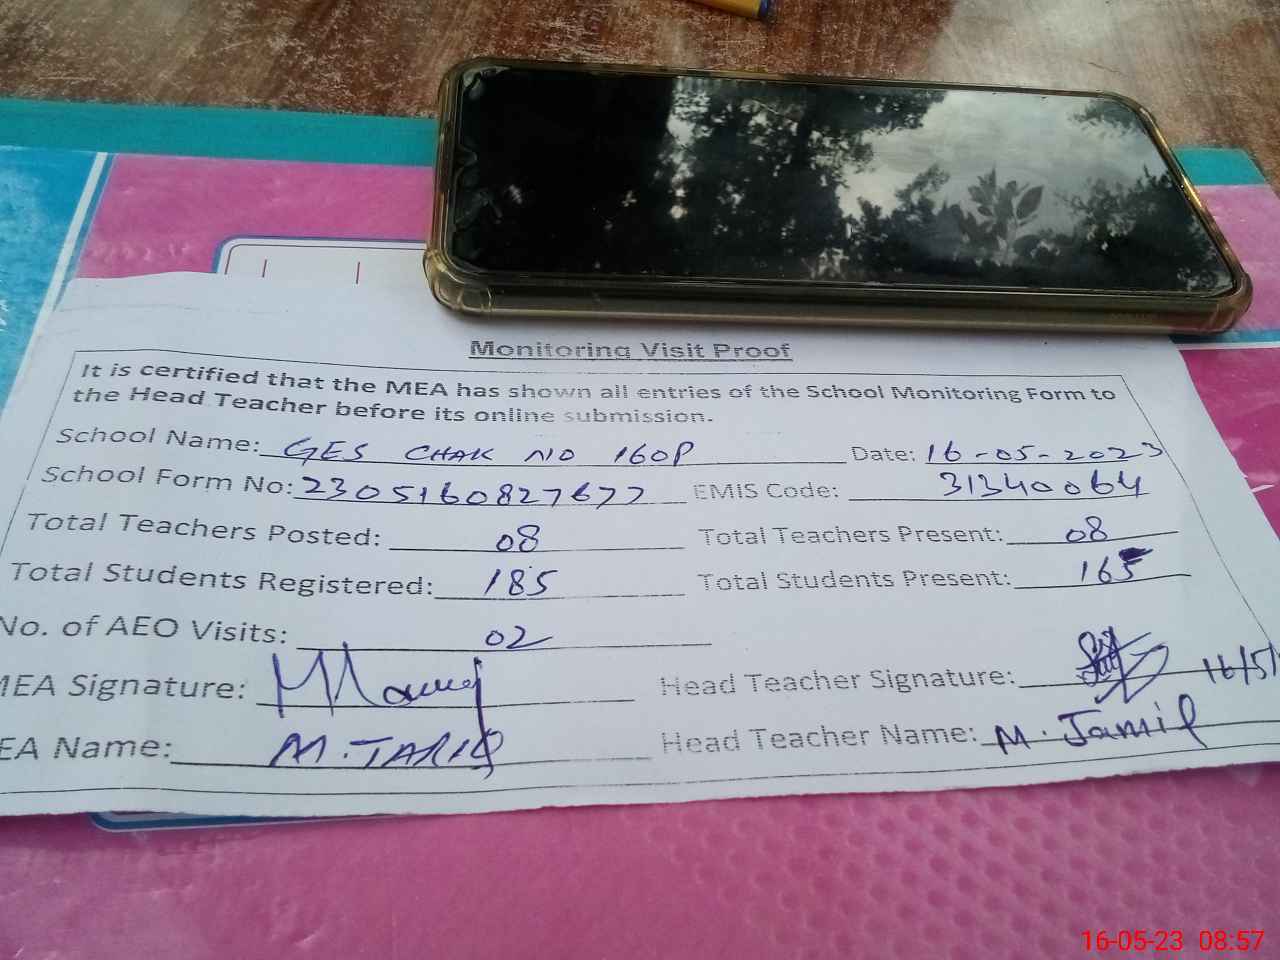 Monitoring Visit Proof
It is certified that the MEA has shown all entries of the School Monitoring Form to
the Head Teacher before its online submission.
School Name: GES CHAK NO 160P Date: 16-05-2023
School Form No: 2305160827677 EMIS Code: 31340064
Total Teachers Posted: 08 Total Teachers Present: 08
Total Students Registered: 185 Total Students Present: 165
No. of AEO Visits: 02
MEA Signature: Head Teacher Signature: 16/5/
EA Name: M.TARIQ Head Teacher Name: M. Jamil
16-05-23 08:57